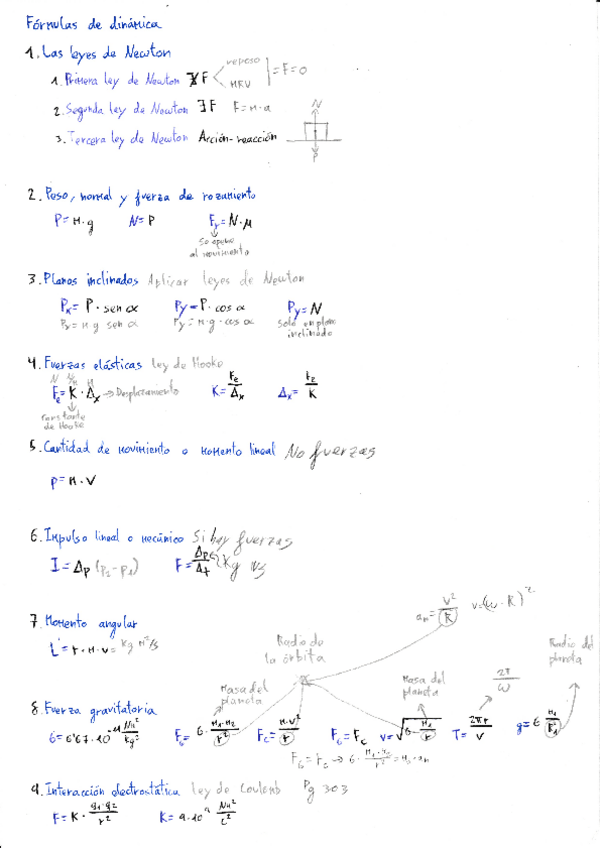 Fórmulas de dinámica
1. Las leyes de Newton
1. Primera ley de Newton ∄F reposo MRU = F=0
2. Segunda ley de Newton ∃F F=M·a
3. Tercera ley de Newton Acción-reacción
N
P
2. Peso, normal y fuerza de rozamiento
P=M·g N=P Fr=N·μ
Se opone
al movimiento
3. Planos inclinados Aplicar leyes de Newton
Px=P·sen α Py=P·cos α Py=N
Px=M·g sen α Py=M·g·cos α Solo en plano
inclinado
4. Fuerzas elásticas ley de Hooke
N N/M M
Fe=K·Δx → Desplazamiento K=Fe/Δx Δx=Fe/K
constante
de Hooke
5. Cantidad de movimiento o momento lineal No fuerzas
p=M·v
6. Impulso lineal o mecánico Si hay fuerzas
I=Δp F=Δp/Δt
an=v²/R v=(ω·R)²
7. Momento angular
L=r·M·v= Kg M²/s
Radio de
la órbita
Radio del
planeta
Masa del
planeta
Masa del
planeta
2π/ω
8. Fuerza gravitatoria
G=6'67·10⁻¹¹ NM²/Kg² FG=G·M1·M2/r² Fc=M·v²/r FG=Fc v=√G·M1/r T=2πr/v g=G M1/r1²
FG=Fc → G·M1·M2/r²=M2·an
9. Interacción electrostática ley de Coulomb Pg 303
F=K·q1·q2/r² K=9·10⁹ NM²/C²